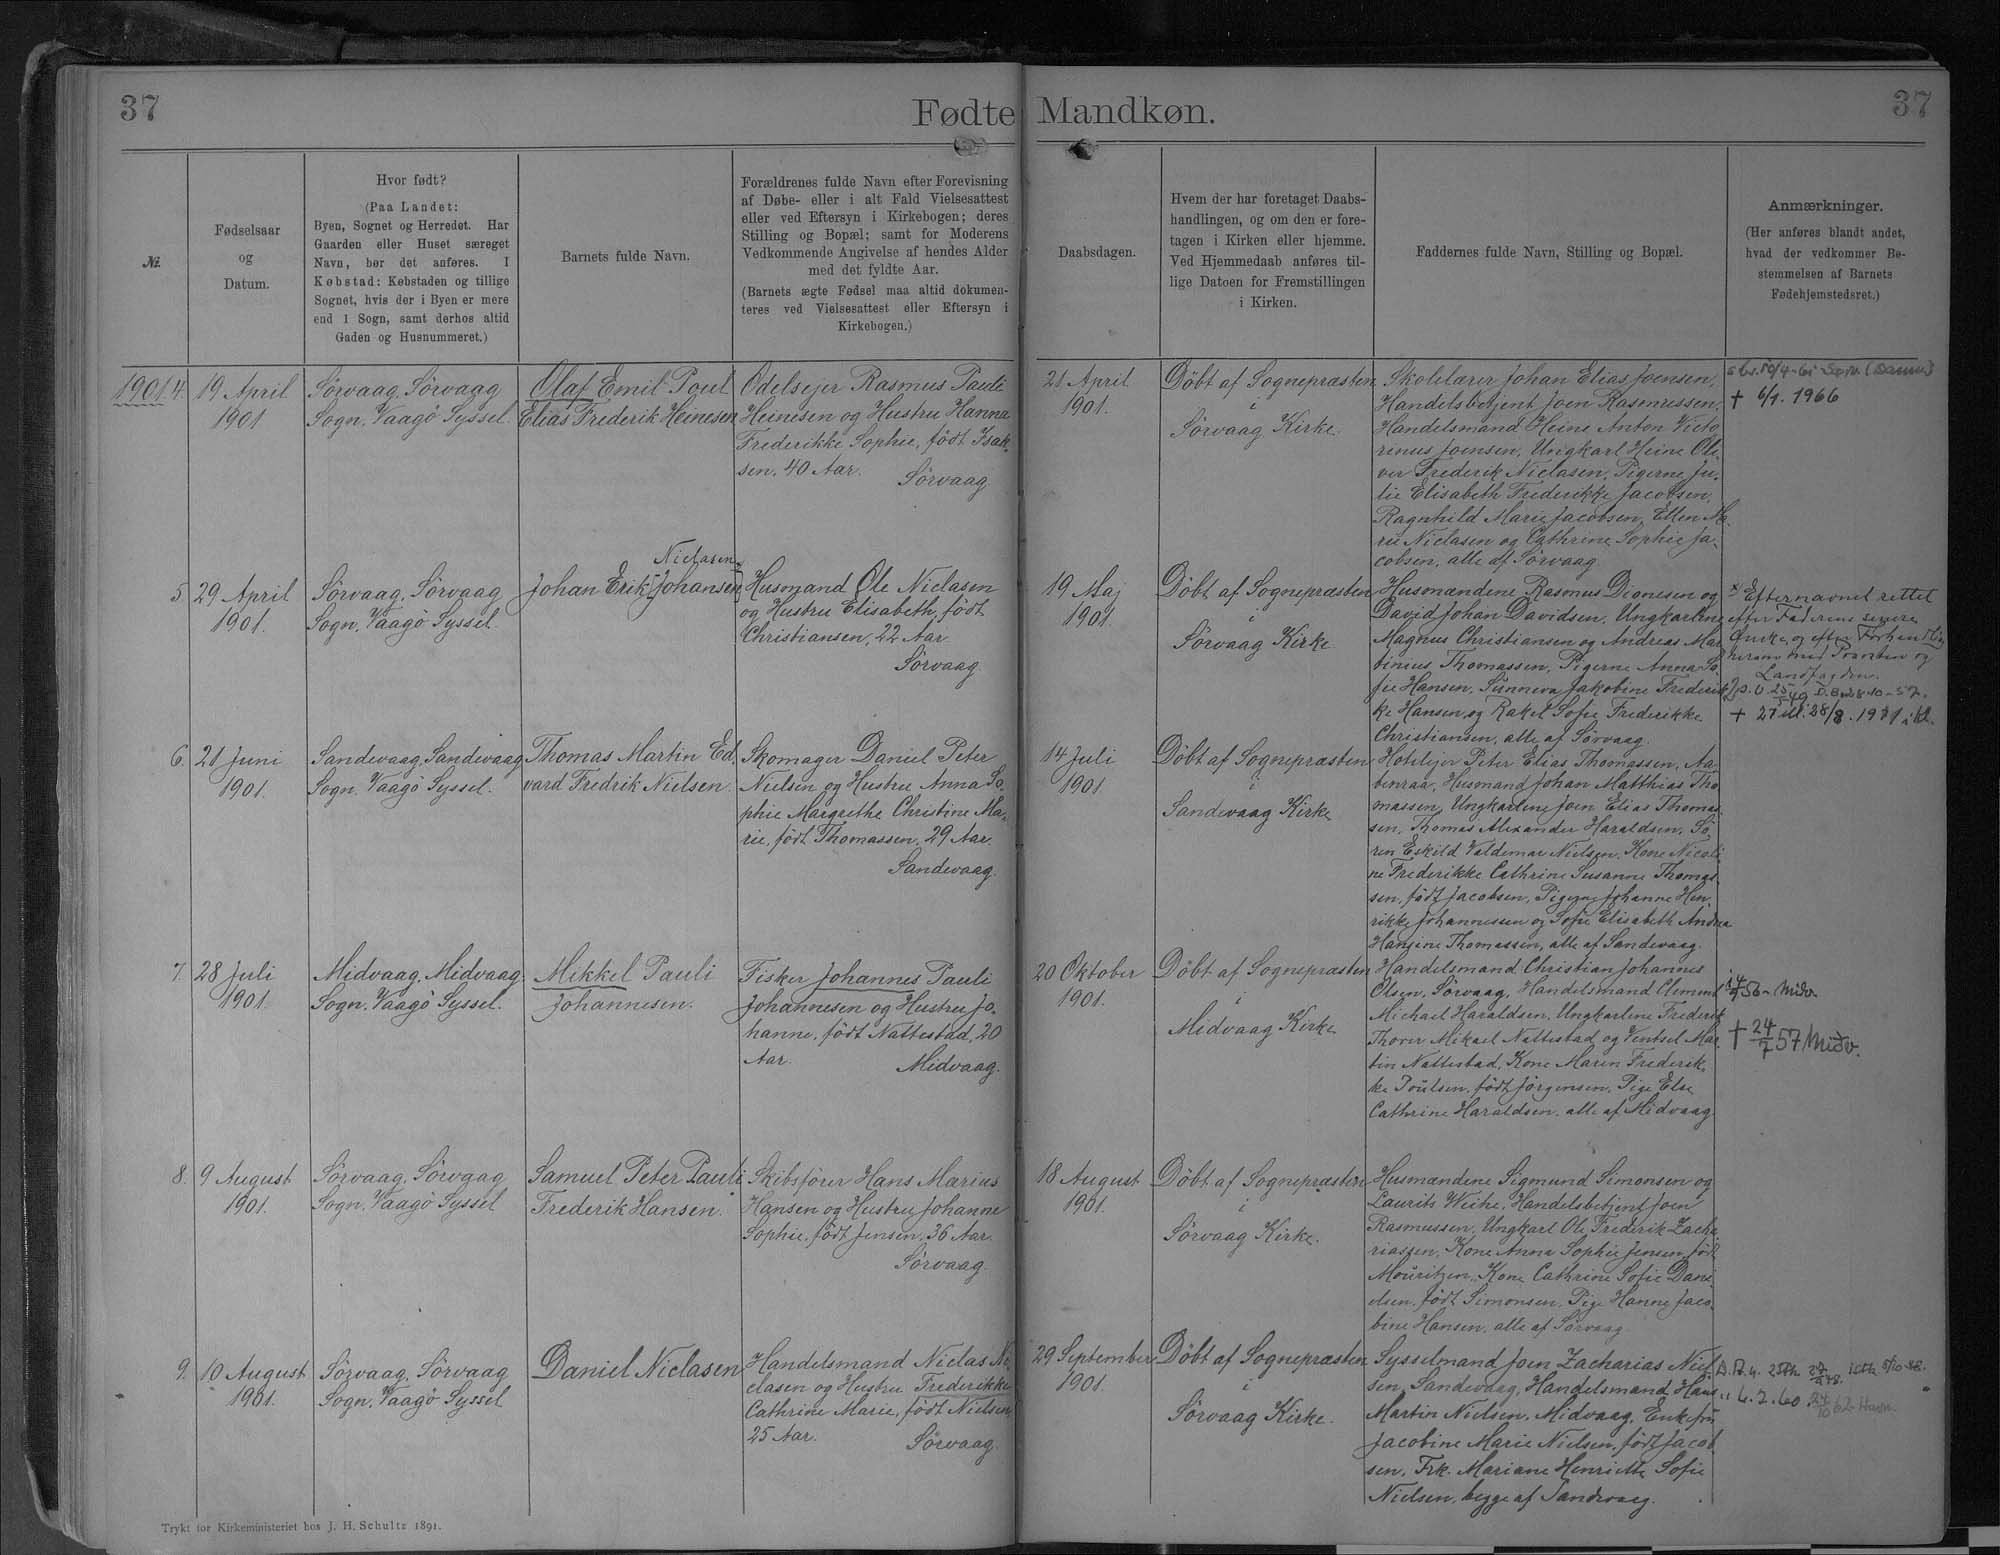 37
Fødte Mandkøn.
37
№.
Fødselsaar
og
Datum.
Hvor født?
(Paa Landet:
Byen, Sognet og Herredet. Har
Gaarden eller Huset særeget
Navn, bør det anføres. I
Købstad: Købstaden og tillige
Sognet, hvis der i Byen er mere
end 1 Sogn, samt derhos altid
Gaden og Husnummeret.)
Barnets fulde Navn.
Forældrenes fulde Navn efter Forevisning
af Døbe- eller i alt Fald Vielsesattest
eller ved Eftersyn i Kirkebogen; deres
Stilling og Bopæl; samt for Moderens
Vedkommende Angivelse af hendes Alder
med det fyldte Aar.
(Barnets ægte Fødsel maa altid dokumen-
teres ved Vielsesattest eller Eftersyn i
Kirkebogen.)
Daabsdagen.
Hvem der har foretaget Daabs-
handlingen, og om den er fore-
tagen i Kirken eller hjemme.
Ved Hjemmedaab anføres til-
lige Datoen for Fremstillingen
i Kirken.
Faddernes fulde Navn, Stilling og Bopæl.
Anmærkninger.
(Her anføres blandt andet,
hvad der vedkommer Be-
stemmelsen af Barnets
Fødehjemstedsret.)
1901 4.
19 April
1901
Sörvaag, Sörvaag
Sogn. Vaagö Syssel.
Olaf Emil Poul
Elias Frederik Heinesen
Odelsejer Rasmus Pauli
Heinesen og Hustru Hanna
Frederikke Sophie, født Isak-
sen, 40 Aar.
Sörvaag
21. April
1901.
Döbt af Sognepræsten
i
Sörvaag Kirke.
Skolelærer Johan Elias Joensen,
Handelsbetjent Joen Rasmussen,
Handelsmand Heine Anton Victo-
rinus Joensen, Ungkarl Heine Oli-
ver Frederik Niclasen, Pigerne Ju-
lie Elisabeth Frederikke Jacobsen,
Ragnhild Marie Jacobsen, Ellen Ma-
rie Niclasen og Cathrine Sophie Ja-
cobsen, alle af Sörvaag.
† 6/1. 1966
5
29 April
1901.
Sörvaag, Sörvaag
Sogn. Vaagö Syssel.
Niclasen
Johan Erik [Johansen]
Husmand Ole Niclasen
og Hustru Elisabeth, født
Christiansen, 22 Aar.
Sörvaag
19 Maj
1901.
Döbt af Sognepræsten
i
Sörvaag Kirke
Husmændene Rasmus Dionesen og
David Johan Davidsen, Ungkarlene
Magnus Christiansen og Andreas Mar-
binius Thomassen, Pigerne Anna So-
fie Hansen, Sünneva Jakobine Frederik-
ke Hansen og Rakel Sofie Frederikke
Christiansen, alle af Sörvaag.
Efternavnet rettet
efter Faderens senere
Önske og efter Forhandling
herom med Provsten og
Landfogden.
6.
21 Juni
1901.
Sandevaag, Sandevaag
Sogn. Vaagö Syssel.
Thomas Martin Ed-
vard Fredrik Nielsen.
Skomager Daniel Peter
Nielsen og Hustru Anna So-
phie Margrethe Christine Ma-
rie, født Thomassen, 29 Aar.
Sandevaag.
14 Juli
1901
Döbt af Sognepræsten
i
Sandevaag Kirke
Hotelejer Peter Elias Thomassen, Aa-
benraa, Husmand Johan Matthias Tho-
massen, Ungkarlene Joen Elias Thomas-
sen, Thomas Alexander Haraldsen, Sö-
ren Eskild Valdemar Nielsen, Kone Nicoli-
ne Frederikke Cathrine Susanne Thomas-
sen, født Jacobsen, Pigerne Johanne Hen-
rikke Johannessen og Sofie Elisabeth Andrea
Hansine Thomassen, alle af Sandevaag.
7.
28 Juli
1901.
Midvaag, Midvaag
Sogn. Vaagö Syssel.
Mikkel Pauli
Johannesen.
Fisker Johannes Pauli
Johannesen og Hustru Jo-
hanne, født Nattestad, 20
Aar.
Midvaag.
20 Oktober
1901.
Döbt af Sognepræsten
i
Midvaag Kirke
Handelsmand Christian Johannes
Olsen, Sörvaag, Handelsmand Clement
Michael Haraldsen, Ungkarlene Frederik
Thorer Mikael Nattestad og Ventsel Mar-
tin Nattestad, Kone Maren Frederik-
ke Poulsen, født Jörgensen, Pige Else
Cathrine Haraldsen, alle af Midvaag.
† 24/7 57 Midv.
8.
9 August
1901.
Sörvaag, Sörvaag
Sogn. Vaagö Syssel
Samuel Peter Pauli
Frederik Hansen.
Skibsförer Hans Marius
Hansen og Hustru Johanne
Sophie, født Jensen, 36 Aar.
Sörvaag
18 August
1901.
Döbt af Sognepræsten
i
Sörvaag Kirke.
Husmændene Sigmund Simonsen og
Laurits Weihe, Handelsbetjent Joen
Rasmussen, Ungkarl Ole Frederik Zacha-
riassen, Kone Anna Sophie Jensen, født
Mouritzen, Kone Cathrine Sofie Dani-
elsen, født Simonsen, Pige Hanne Jaco-
bine Hansen, alle af Sörvaag
9.
10 August
1901.
Sörvaag, Sörvaag
Sogn. Vaagö Syssel
Daniel Niclasen
Handelsmand Niclas Ni-
clasen og Hustru Frederikke
Cathrine Marie, født Nielsen,
25 Aar.
Sörvaag.
29 September
1901.
Döbt af Sognepræsten
i
Sörvaag Kirke.
Sysselmand Joen Zacharias Niel-
sen, Sandevaag, Handelsmand Hans
Martin Nielsen, Midvaag, Enkefru
Jacobine Marie Nielsen, født Jacob-
sen, Frk. Mariane Henriette Sofie
Nielsen, begge af Sandevaag.
Trykt for Kirkeministeriet hos J. H. Schultz 1891.